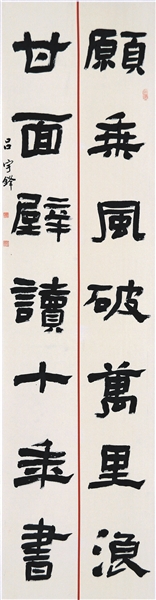 願乘風破萬里浪
甘面壁讀十年書
呂宇鋒